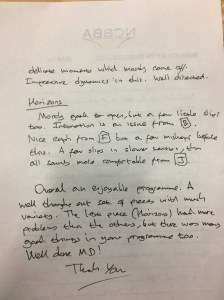 NCBBA
delicate moments which mostly came off.
Impressive dynamics in this. Well directed.
Horizons
Mostly good to open, but a few little slips
too. Intonation is an issue from B.
Nice enough from F but a few mishaps before
this. A few slips in slower section, then
all sounds more comfortable from J.
Overall an enjoyable programme. A
well thought out set of pieces with much
variety. The last piece (Horizons) had more
problems than the others, but there was many
good things in your programme too.
Well done MD!
Thank You